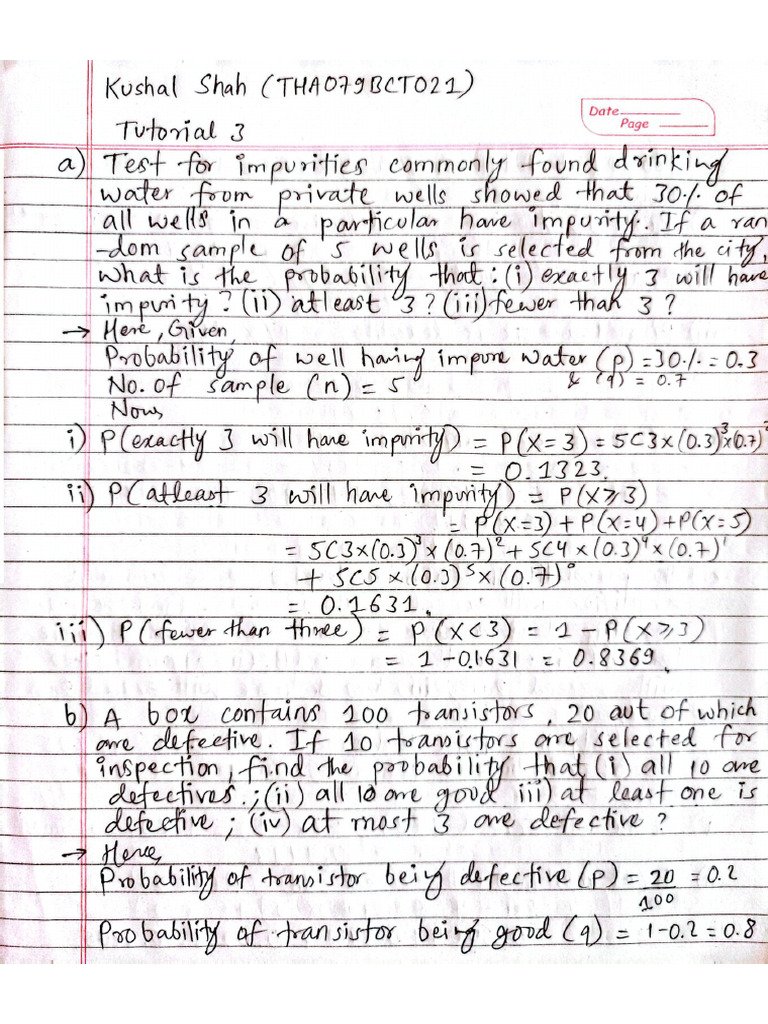 Kushal Shah (THA079BCT021)
Date
Page
Tutorial 3
a) Test for impurities commonly found drinking
water from private wells showed that 30% of
all wells in a particular have impurity. If a ran
-dom sample of 5 wells is selected from the city,
what is the probability that: (i) exactly 3 will have
impurity? (ii) atleast 3? (iii) fewer than 3?
→ Here, Given,
Probability of well having impure water (p) = 30% = 0.3
No. of sample (n) = 5 & (q) = 0.7
Now,
i) P(exactly 3 will have impurity) = P(X=3) = 5C3×(0.3)³×(0.7)²
= 0.1323.
ii) P(atleast 3 will have impurity) = P(X⩾3)
= P(X=3) + P(X=4) + P(X=5)
= 5C3×(0.3)³×(0.7)² + 5C4×(0.3)⁴×(0.7)¹
+ 5C5×(0.3)⁵×(0.7)⁰
= 0.1631.
iii) P(fewer than three) = P(X<3) = 1 - P(X⩾3)
= 1-0.1631 = 0.8369.
b) A box contains 100 transistors, 20 out of which
are defective. If 10 transistors are selected for
inspection, find the probability that (i) all 10 are
defectives.; (ii) all 10 are good iii) at least one is
defective; (iv) at most 3 are defective?
→ Here,
Probability of transistor being defective (p) = 20/100 = 0.2
Probability of transistor being good (q) = 1-0.2 = 0.8